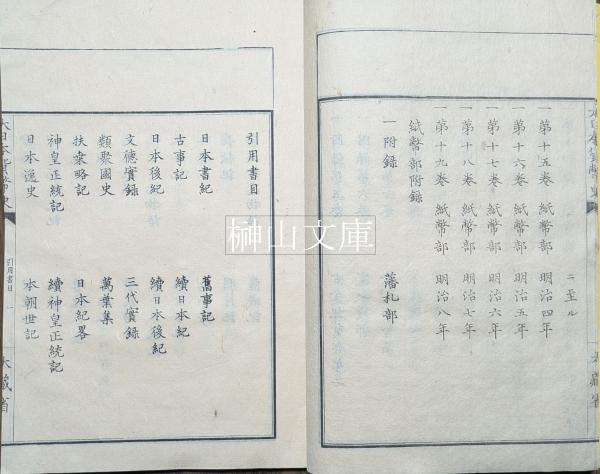 ニ至ル
一 第十五巻 紙幣部 明治四年
一 第十六巻 紙幣部 明治五年
一 第十七巻 紙幣部 明治六年
一 第十八巻 紙幣部 明治七年
一 第十九巻 紙幣部 明治八年
紙幣部附録
一 附録 藩札部
大日本貨幣史
大藏省
引用書目
日本書紀 舊事記
古事記 續日本紀
日本後紀 續日本後紀
文德實録 三代實録
類聚國史 萬葉集
扶桒略記 日本紀畧
神皇正統記 續神皇正統記
日本逸史 本朝世記
大日本貨幣史
引用書目
一
大藏省
榊山文庫